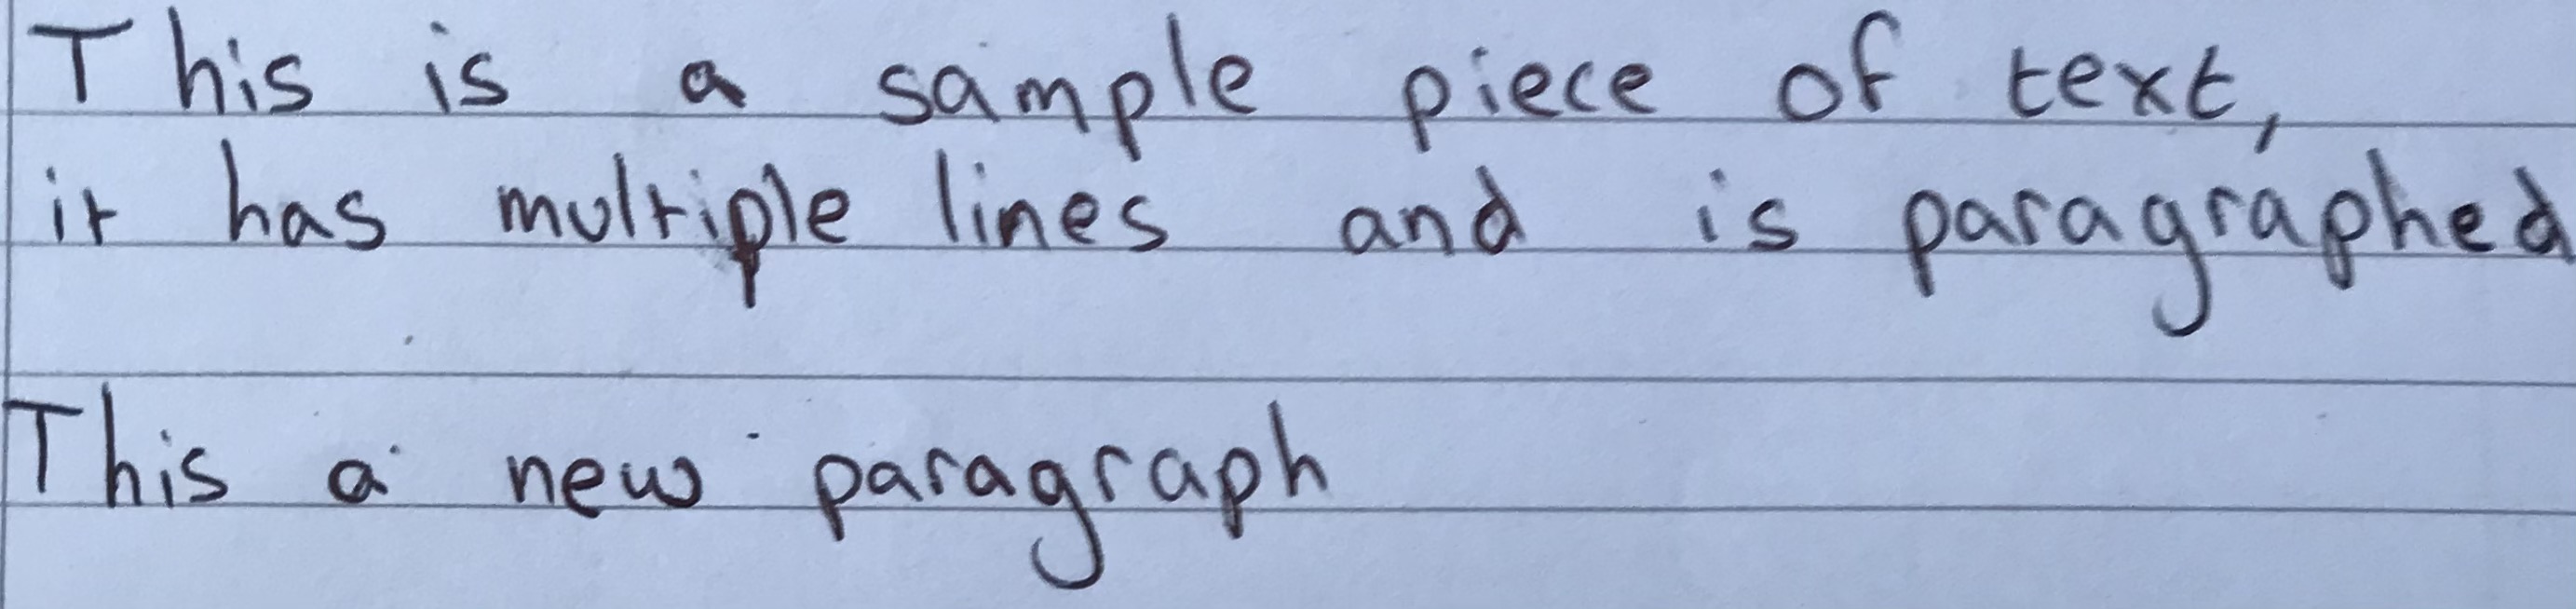 This is a sample piece of text,
it has multiple lines and is paragraphed
This a new paragraph